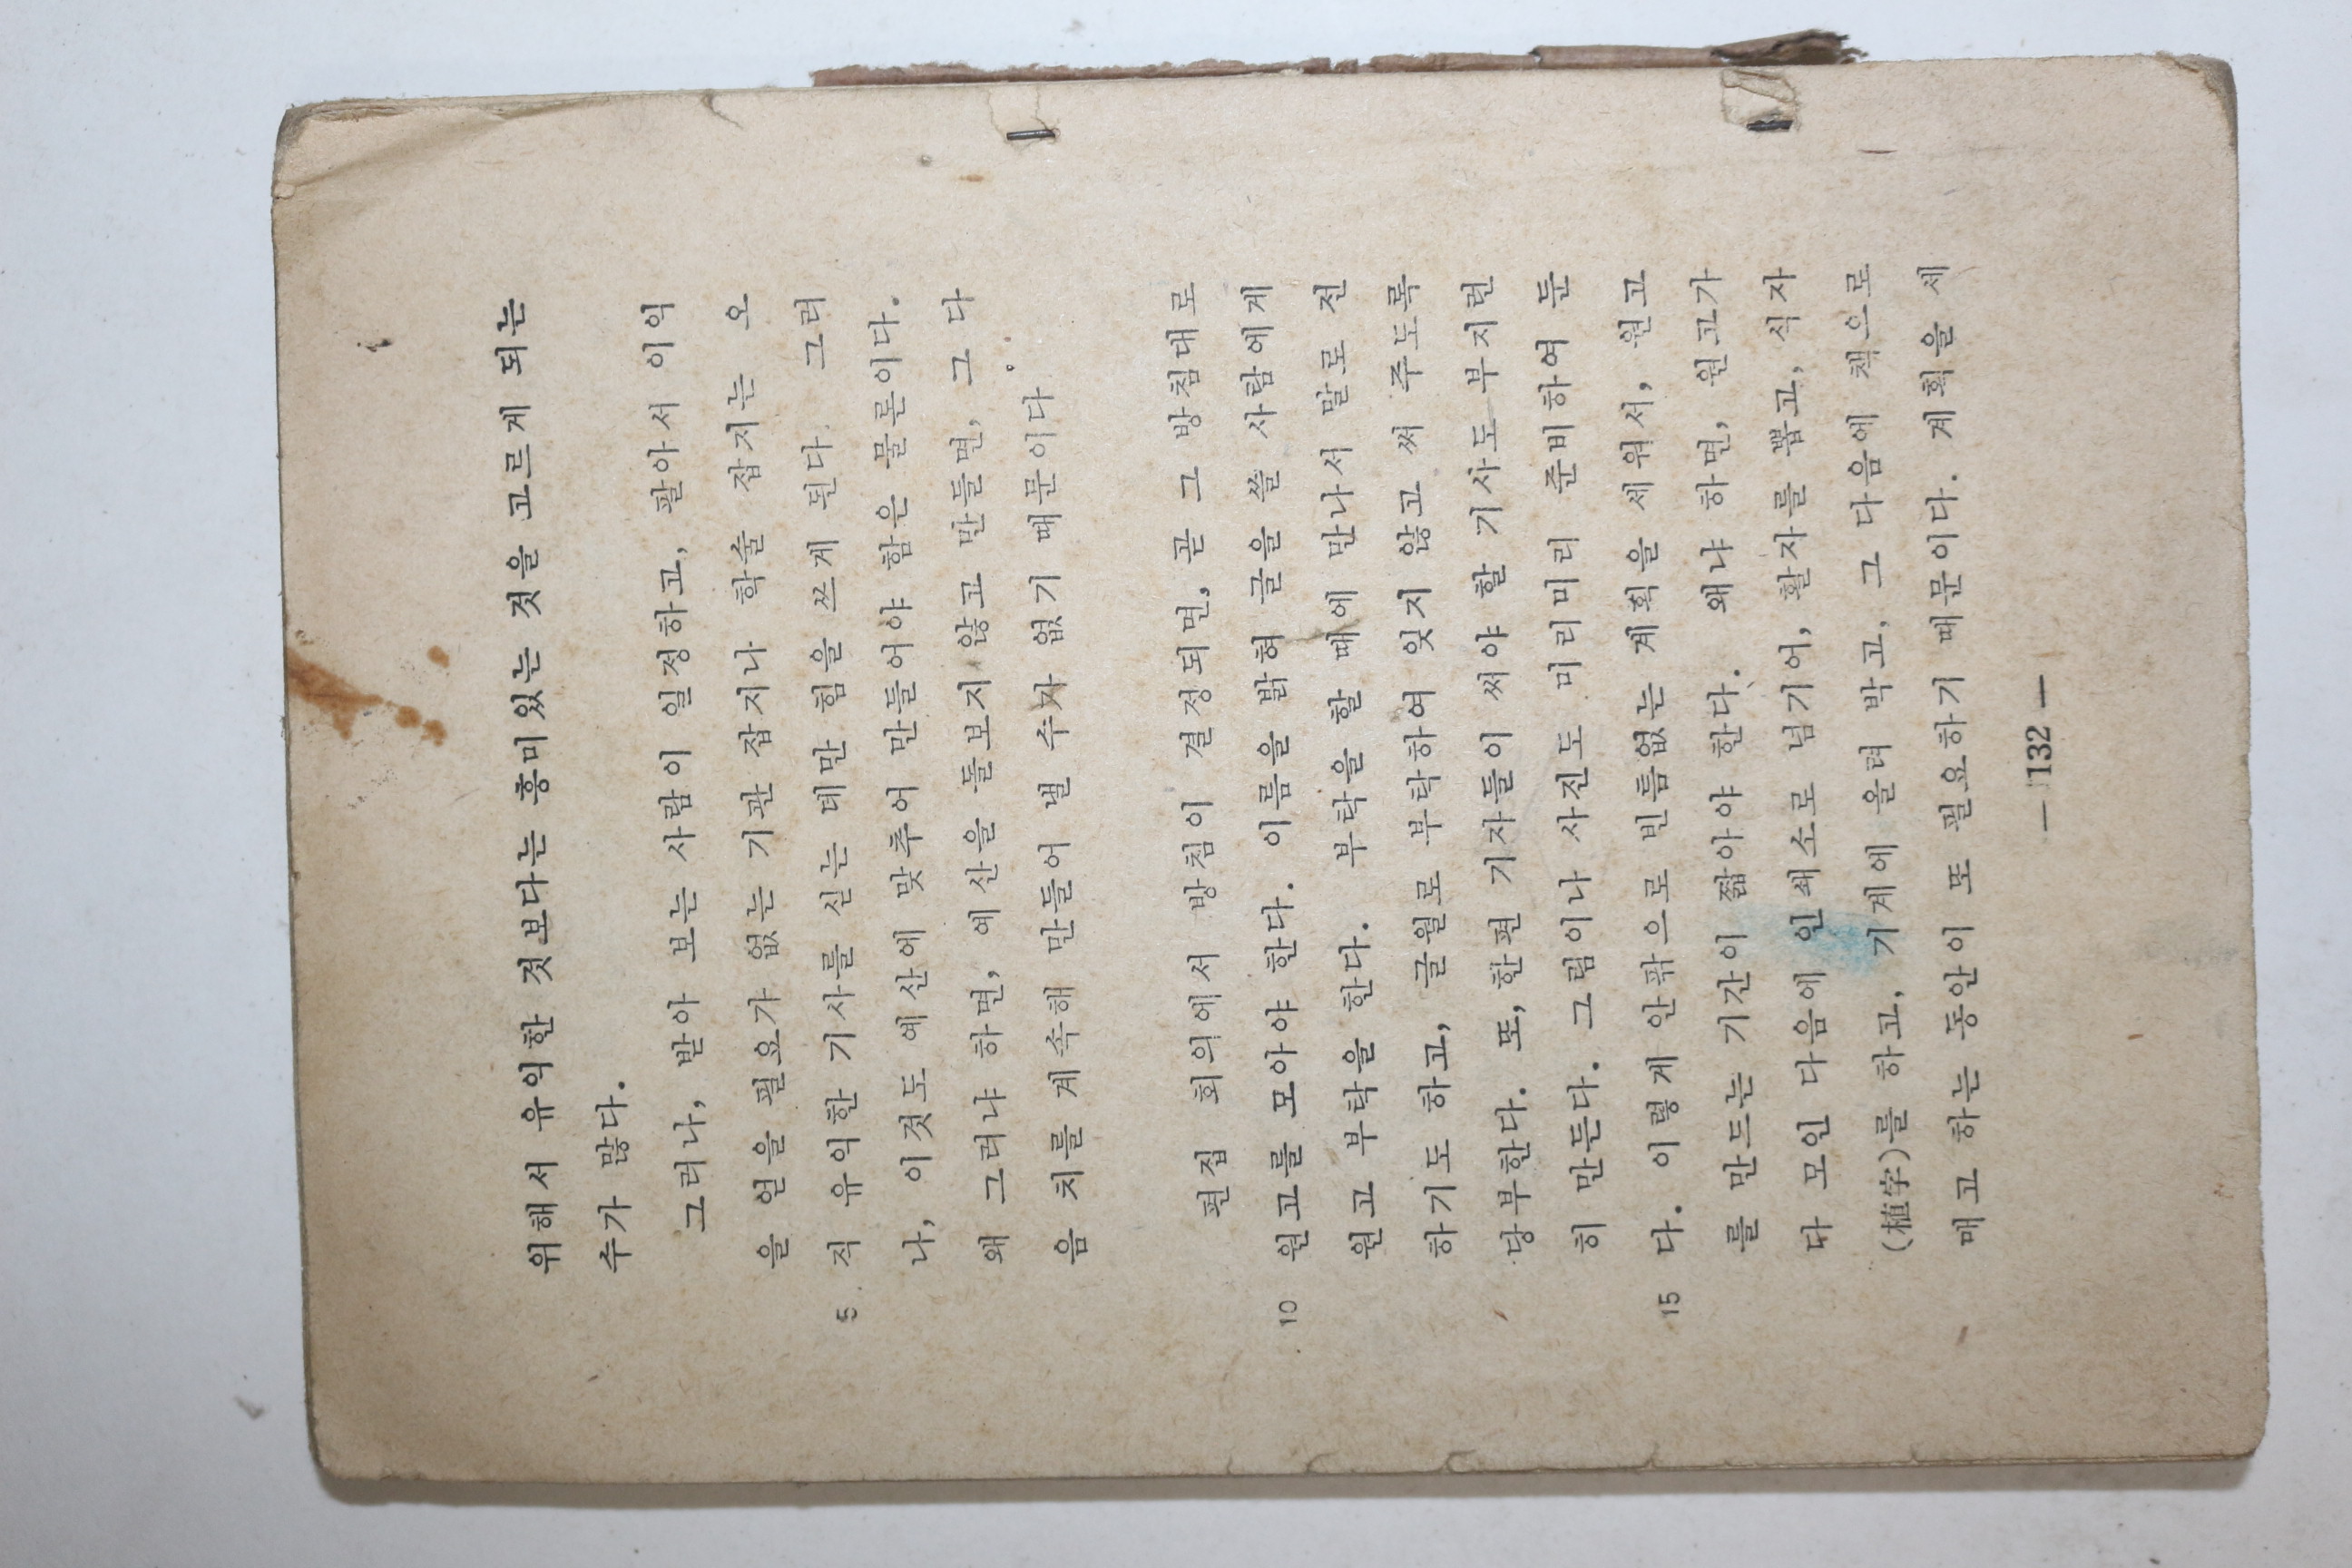 위해서 유익한 것보다는 흥미있는 것을 고르게 되는
수가 많다.
그러나, 받아 보는 사람이 일정하고, 팔아서 이익
을 얻을 필요가 없는 기관 잡지나 학술 잡지는 오
5 직 유익한 기사를 싣는 데만 힘을 쓰게 된다. 그러
나, 이것도 예산에 맞추어 만들어야 함은 물론이다.
왜 그러냐 하면, 예산을 돌보지 않고 만들면, 그 다
음 치를 계속해 만들어 낼 수가 없기 때문이다.
편집 회의에서 방침이 결정되면, 곧 그 방침대로
10 원고를 모아야 한다. 이름을 밝혀 글을 쓸 사람에게
원고 부탁을 한다. 부탁을 할 때에 만나서 말로 전
하기도 하고, 글월로 부탁하여 잊지 않고 써 주도록
당부한다. 또, 한편 기자들이 써야 할 기사도 부지런
히 만든다. 그림이나 사진도 미리미리 준비하여 둔
15 다. 이렇게 안팎으로 빈틈없는 계획을 세워서, 원고
를 만드는 기간이 짧아야 한다. 왜냐 하면, 원고가
다 모인 다음에 인쇄소로 넘기어, 활자를 뽑고, 식자
(植字)를 하고, 기계에 올려 박고, 그 다음에 책으로
매고 하는 동안이 또 필요하기 때문이다. 계획을 세
— 132 —